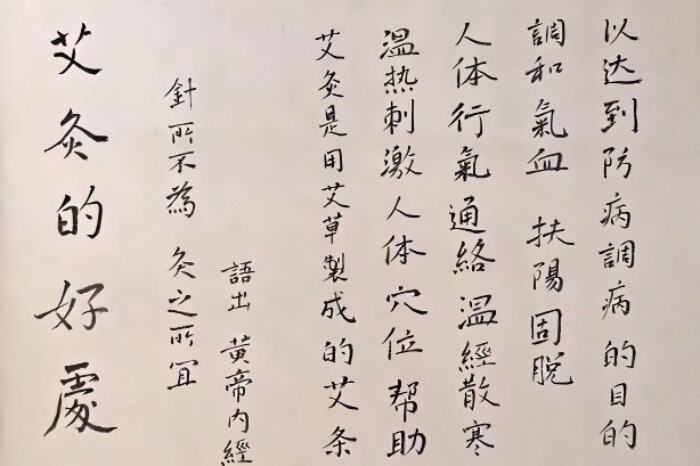 艾灸的好處
針所不為 灸之所宜
語出 黃帝内經
艾灸是用艾草製成的艾条
温热刺激人体穴位 帮助
人体行氣通絡 温經散寒
調和氣血 扶陽固脱
以达到防病調病的目的